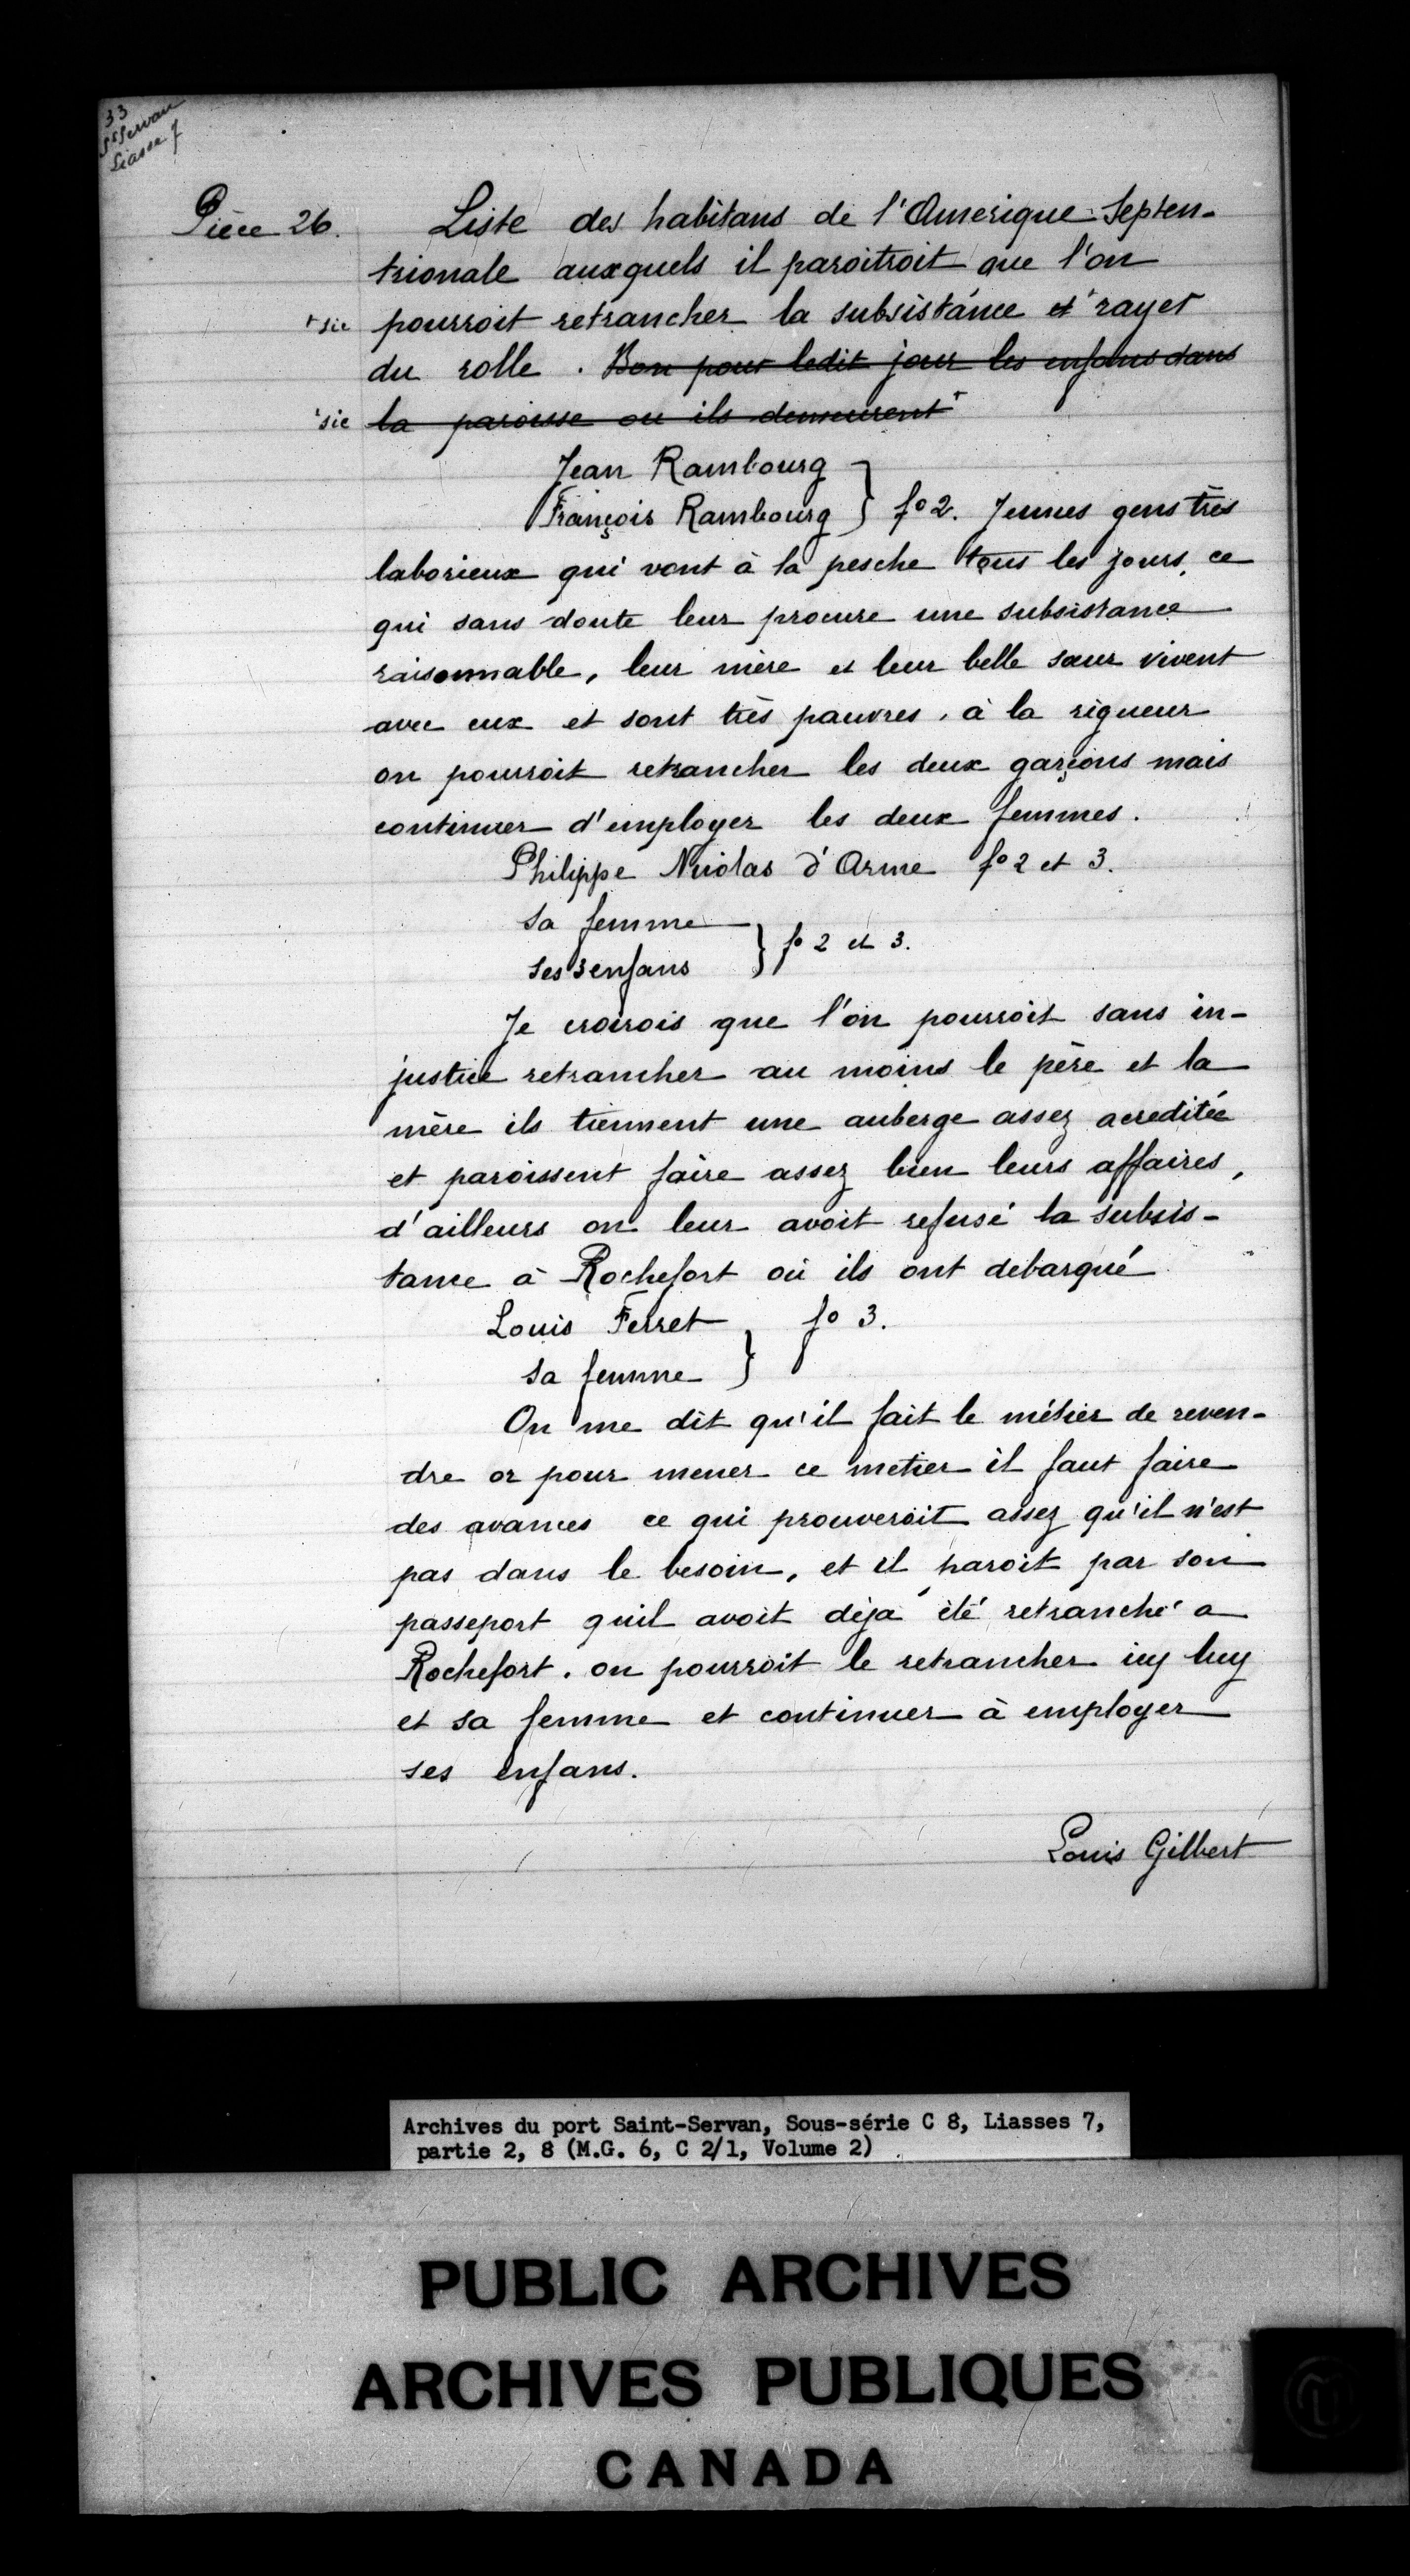 33
St Servan
Liasse 7
Pièce 26.
Liste des habitans de l'Amerique Septen-
trionale auxquels il paroitroit que l'on
+sic pourroit retrancher la subsistance et+ rayer
du rolle. Bon pour ledit jour les enfans dans
+sic la paroisse ou ils demeurent+
Jean Rambourg
François Rambourg } fo 2. Jeunes gens très
laborieux qui vont à la pesche tous les jours, ce
qui sans doute leur procure une subsistance
raisonnable, leur mère et leur belle sœur vivent
avec eux et sont très pauvres. à la rigueur
on pourroit retrancher les deux garçons mais
continuer d'employer les deux femmes.
Philippe Nicolas d'Arme fo 2 et 3.
sa femme
ses 3 enfans } fo 2 et 3.
Je croirois que l'on pourroit sans in-
justice retrancher au moins le père et la
mère ils tiennent une auberge assez acreditée
et paroissent faire assez bien leurs affaires,
d'ailleurs on leur avoit refusé la subsis-
tance à Rochefort où ils ont debarqué
Louis Ferret fo 3.
sa femme }
On me dit qu'il fait le métier de reven-
dre or pour mener ce metier il faut faire
des avances ce qui prouveroit assez qu'il n'est
pas dans le besoin, et il paroit par son
passeport quil avoit déja été retranché a
Rochefort. on pourroit le retrancher icy luy
et sa femme et continuer à employer
ses enfans.
Louis Gilbert
Archives du port Saint-Servan, Sous-série C 8, Liasses 7,
partie 2, 8 (M.G. 6, C 2/1, Volume 2)
PUBLIC ARCHIVES
ARCHIVES PUBLIQUES
CANADA